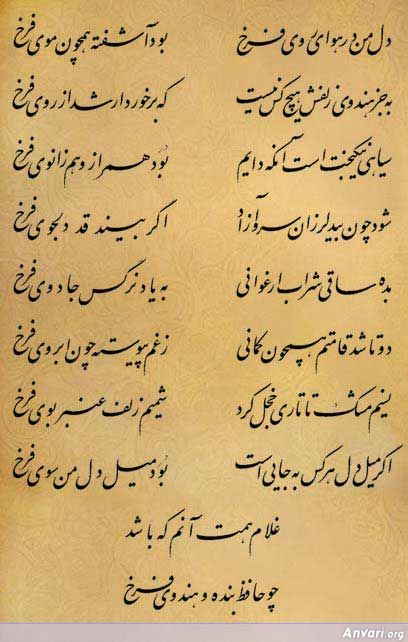 دل من در هوای روی فرخ بود آشفته همچون موی فرخ
به جز هندوی زلفش هیچ کس نیست که برخوردار شد از روی فرخ
سیاهی نیکبخت است آنکه دایم بود همراز و هم زانوی فرخ
شود چون بید لرزان سرو آزاد اگر بیند قد دلجوی فرخ
بده ساقی شراب ارغوانی به یاد نرگس جادوی فرخ
دوتا شد قامتم همچون کمانی ز غم پیوسته چون ابروی فرخ
نسیم مشک تاتاری خجل کرد شمیم زلف عنبر بوی فرخ
اگر میل دل هر کس به جایی است بود میل دل من سوی فرخ
غلام همت آنم که باشد
چو حافظ بنده و هندوی فرخ
Anvari.org